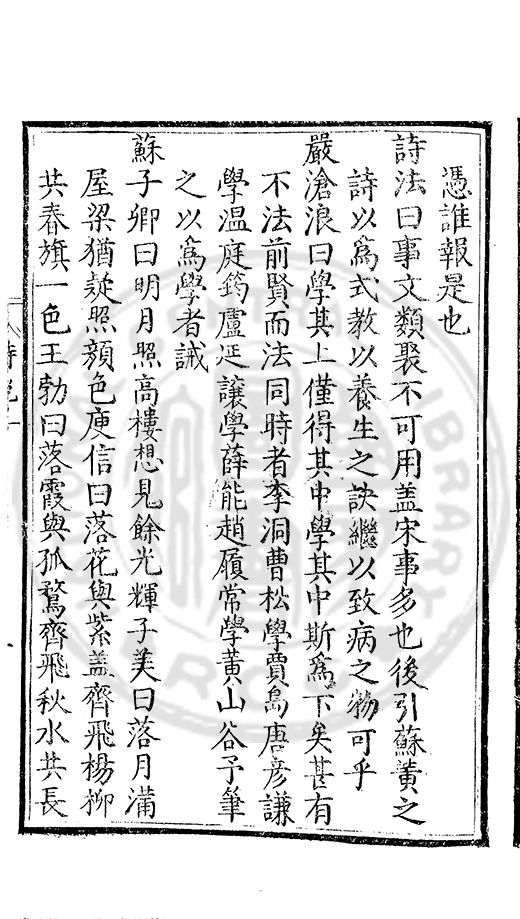 憑誰報是也
詩法曰事文類聚不可用盖宋事多也後引蘇黄之
詩以為式教以養生之訣繼以致病之物可乎
嚴滄浪曰學其上僅得其中學其中斯為下矣甚有
不法前賢而法同時者李洞曹松學賈島唐彦謙
學温庭筠盧延讓學薛能趙履常學黄山谷予筆
之以為學者誡
蘇子卿曰明月照高樓想見餘光輝子美曰落月滿
屋梁猶疑照顔色庾信曰落花與紫盖齊飛楊柳
共春旗一色王勃曰落霞與孤鶩齊飛秋水共長